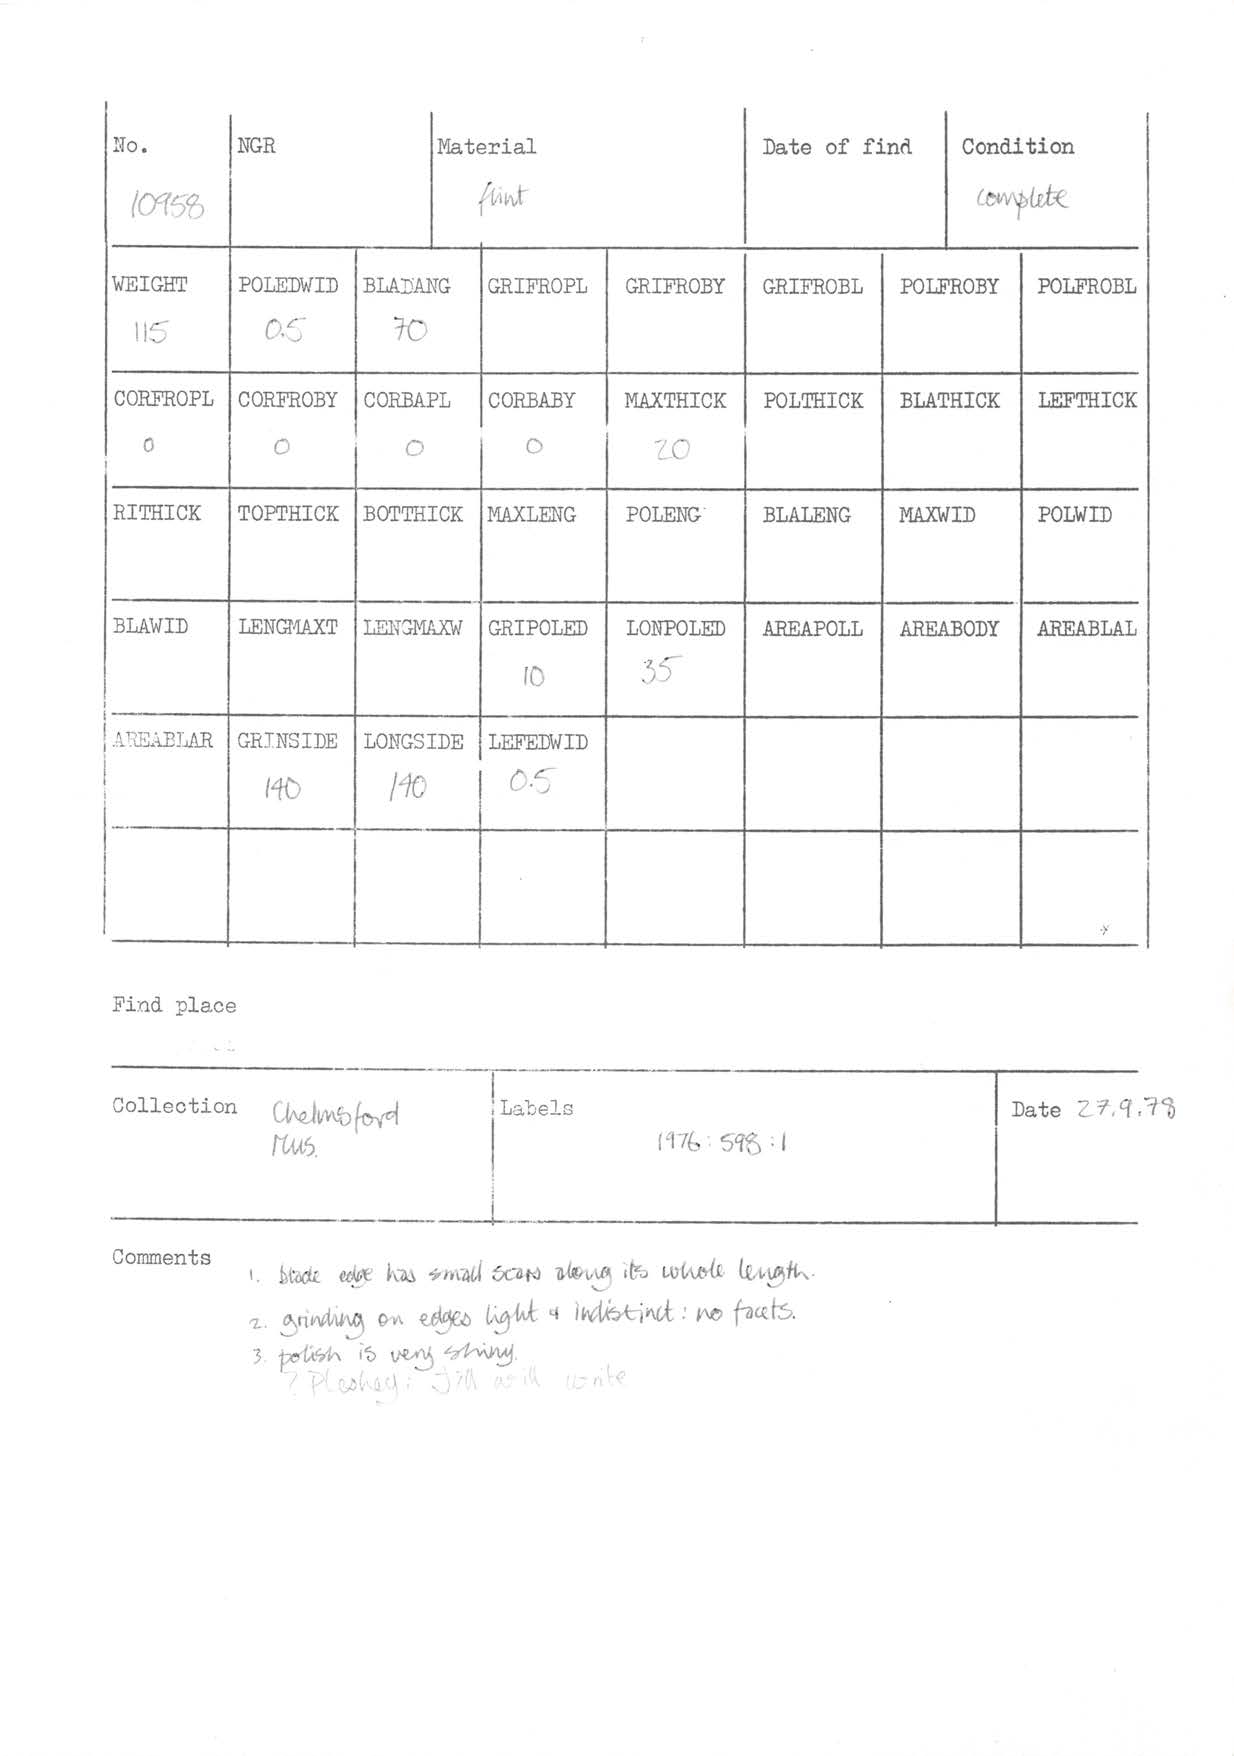 No. NGR Material Date of find Condition
10958 flint complete
WEIGHT POLEDWID BLADANG GRIFROPL GRIFROBY GRIFROBL POLFROBY POLFROBL
115 0.5 70
CORFROPL CORFROBY CORBAPL CORBABY MAXTHICK POLTHICK BLATHICK LEFTHICK
0 0 0 0 20
RITHICK TOPTHICK BOTTHICK MAXLENG POLENG BLALENG MAXWID POLWID
BLAWID LENGMAXT LENGMAXW GRIPOLED LONPOLED AREAPOLL AREABODY AREABLAL
10 35
AREABLAR GRINSIDE LONGSIDE LEFEDWID
140 140 0.5
Find place
Collection Chelmsford Labels Date 27.9.78
Mus. 1976:598:1
Comments
1. blade edge has small scars along its whole length.
2. grinding on edges light & indistinct: no facets.
3. polish is very shiny.
? Pleshey: Jill will write